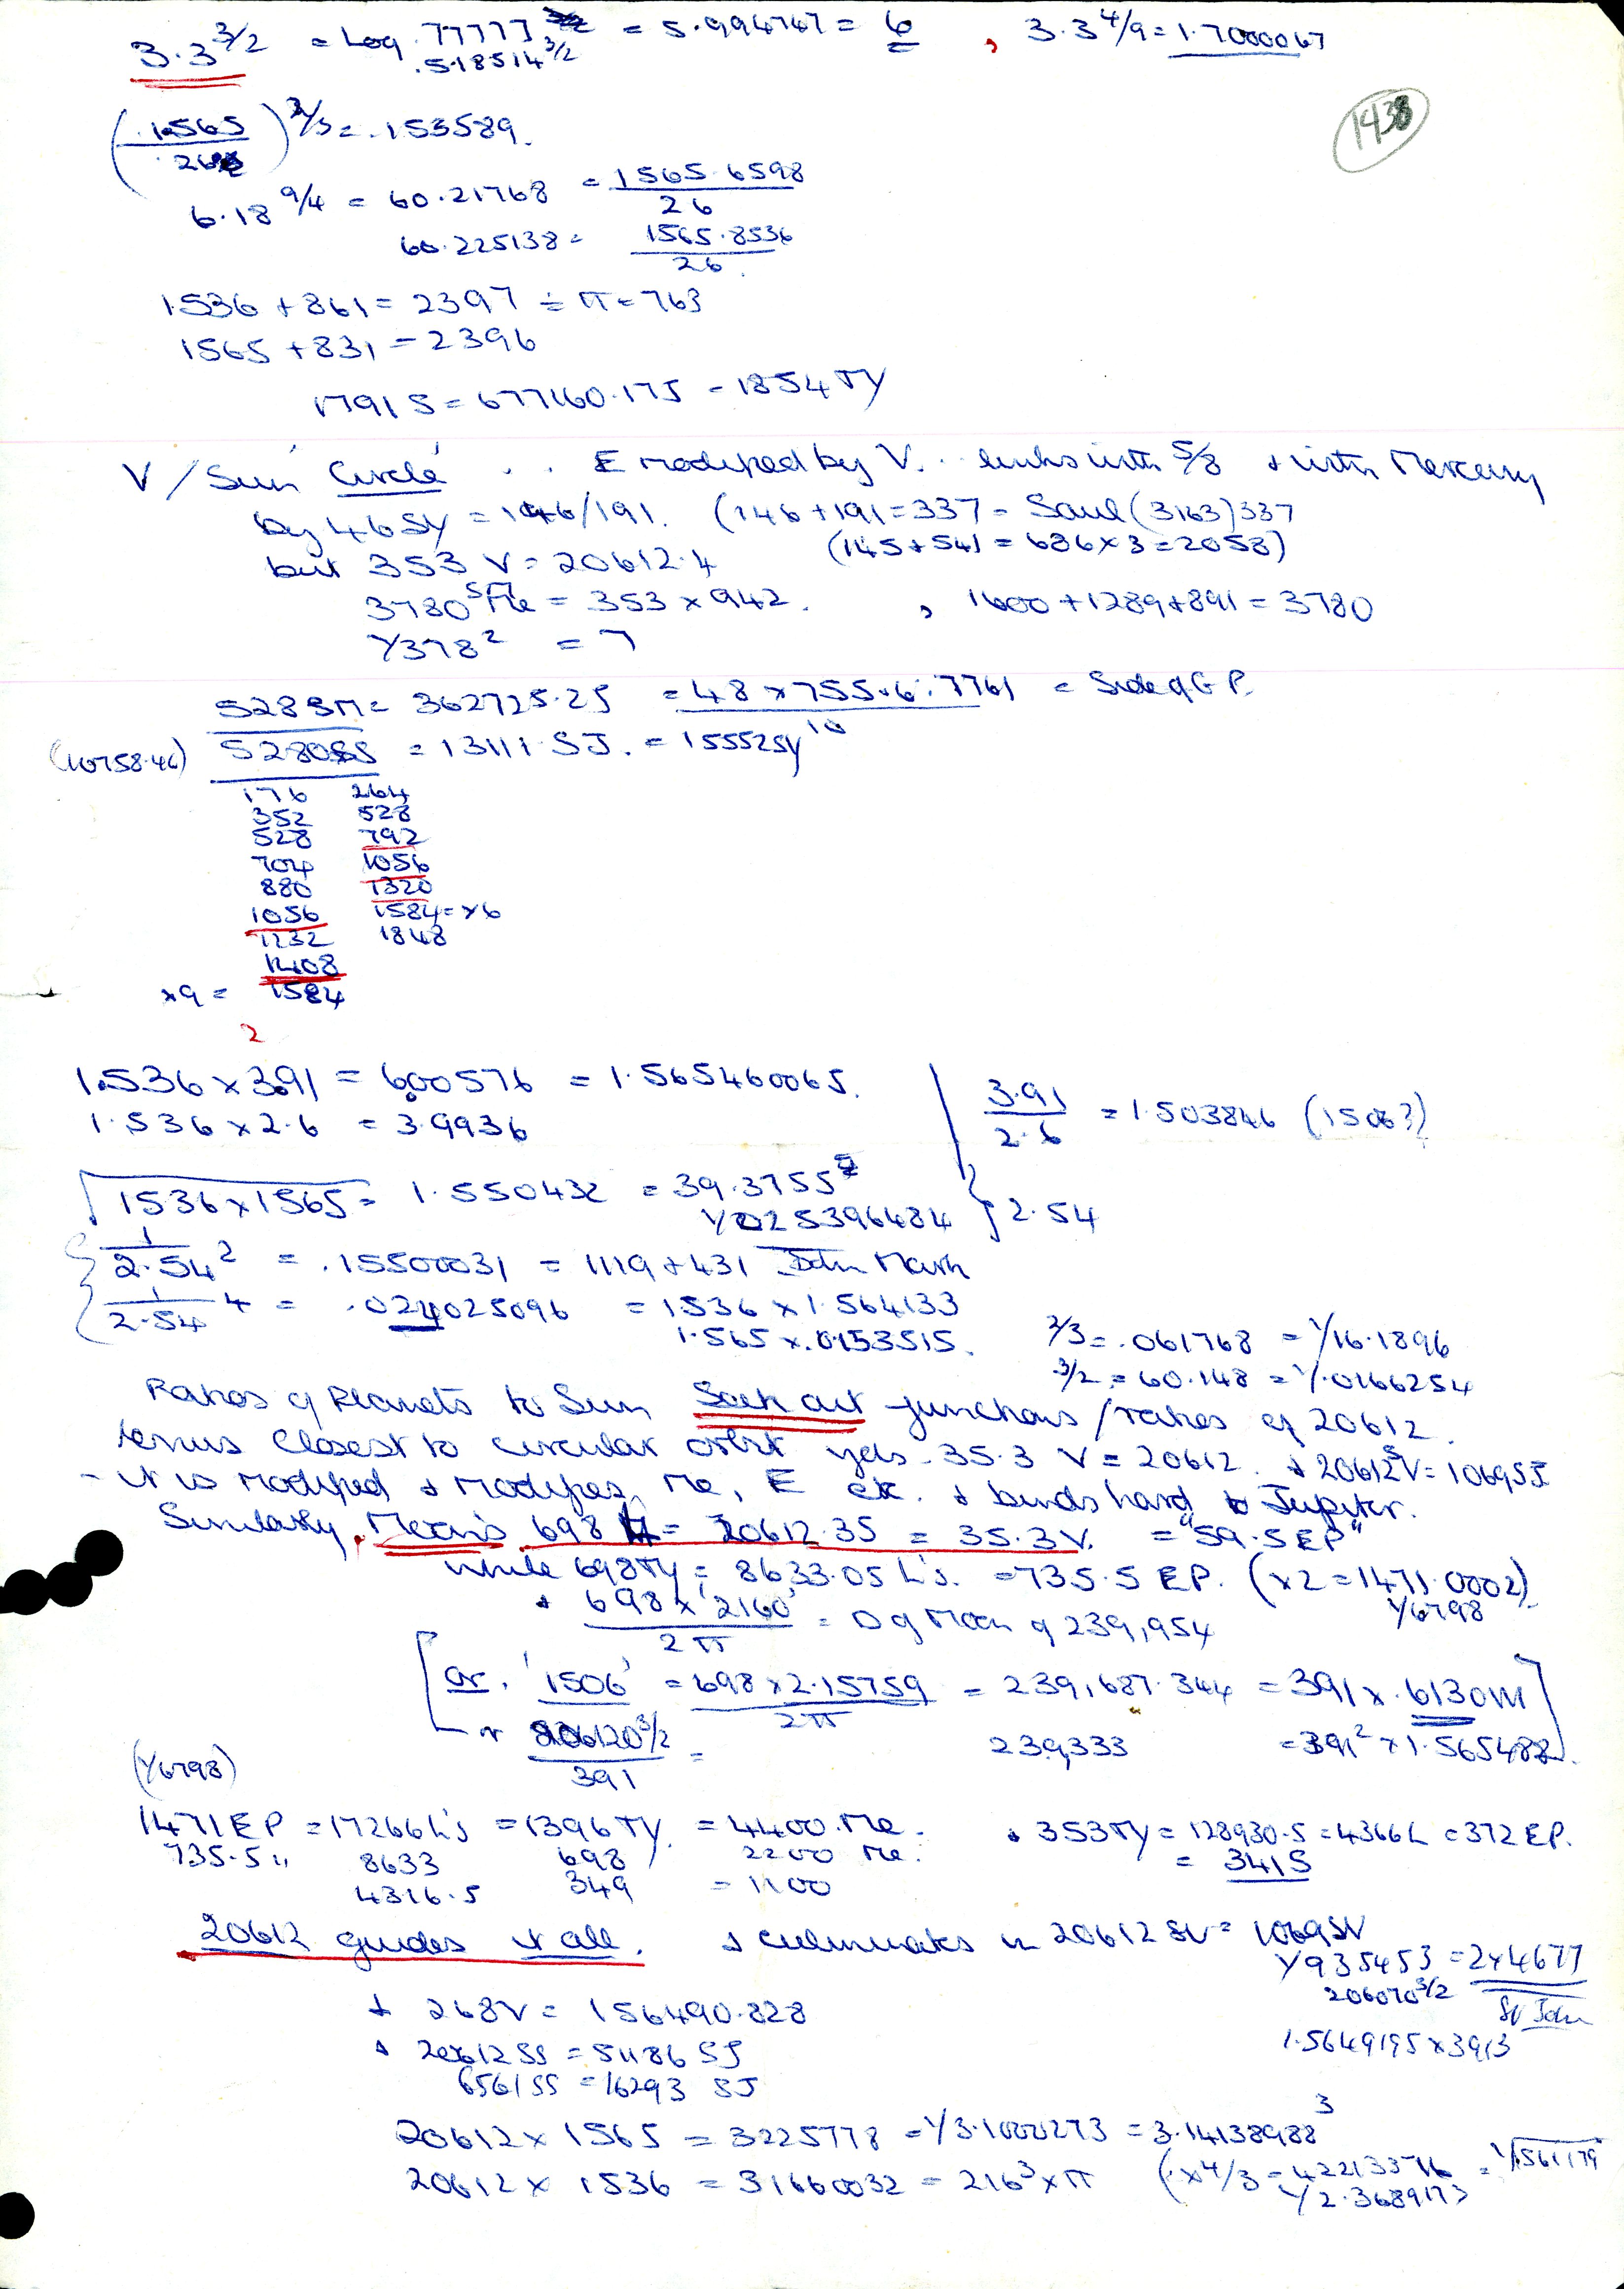 3.3^3/2 = Log .77777 / .518514^3/2 = 5.994747 = 6 , 3.3^4/9 = 1.7000067
1438
(1.565 / 26)^2/3 = .153589.
6.18^9/4 = 60.21768 = 1565.6598 / 26
60.225138 = 1565.8536 / 26
1536 + 861 = 2397 ÷ π = 763
1565 + 831 = 2396
1791 S = 677160.175 = 1854 TY
V / Sun Circle . . E modified by V. . links with 5/8 & with Mercury
by 46 SY = 146/191. (146 + 191 = 337 = Saul (3163) 337
(145 + 541 = 686 × 3 = 2058)
but 353 V = 20612.4
3780 SMe = 353 × 942. , 1600 + 1289 + 891 = 3780
1/378^2 = 7
528 SM = 362725.25 = 48 × 755.6.7761 = Side of G P.
(10758.46) 5280 SS = 13111 SJ. = 15552 SY
176 264
352 528
528 792
704 1056
880 1320
1056 1584 = ×6
1232 1848
1408
×9 = 1584
2
1.536 × 3.91 = 600576 = 1.565460065.
1.536 × 2.6 = 3.9936
3.91 / 2.6 = 1.503846 (1506?)
√1536 × 1565 = 1.550432 = 39.3755^2
1/025396484 } 2.54
1 / 2.54^2 = .15500031 = 1119 + 431 John Mark
1 / 2.54^4 = .024025096 = 1536 × 1.564133
1.565 × .0153515.
2/3 = .061768 = 1/16.1896
3/2 = 60.148 = 1/.0166254
Ratios of Planets to Sun Seek out junctions / ratios of 20612.
Venus closest to circular orbit yels - 35.3 V = 20612. & 20612 SV = 1069 SJ
- it is modified & modifies, Me, E etc. & binds hard to Jupiter.
Similarly, Moon's 698 = 20612.35 = 35.3 V. = "59.5 EP"
while 698 TY = 8633.05 L's. = 735.5 EP. (×2 = 1471.0002)
1/6798
& 698 × '2160' / 2π = D of Moon of 239,954
or, '1506' = 698 × 2.15759 / 2π = 239,687.344 = 391 × .6130 M
206120^3/2 / 391 = 239,333 = 391^2 × 1.565488
(1/6798)
1471 EP = 17266 L's = 1396 TY. = 4400 Me. & 353 TY = 128930.5 = 4366 L = 372 EP.
735.5 " 8633 698 2200 Me. = 341 S
4316.5 349 = 1100
20612 guides it all. & culminates in 20612 SV = 1069 SV
1/935453 = 2 × 4677
206070^3/2 St John
& 268 V = 156490.828
1.5649195 × 3913
& 20612 SS = 51186 SJ
6561 SS = 16293 SJ
20612 × 1565 = 3225778 = 1/3.1000273 = 3.14138988^3
20612 × 1536 = 31660032 = 216^3 × π (×4/3 = 42213376 = 1/√.561179
1/2.3689173